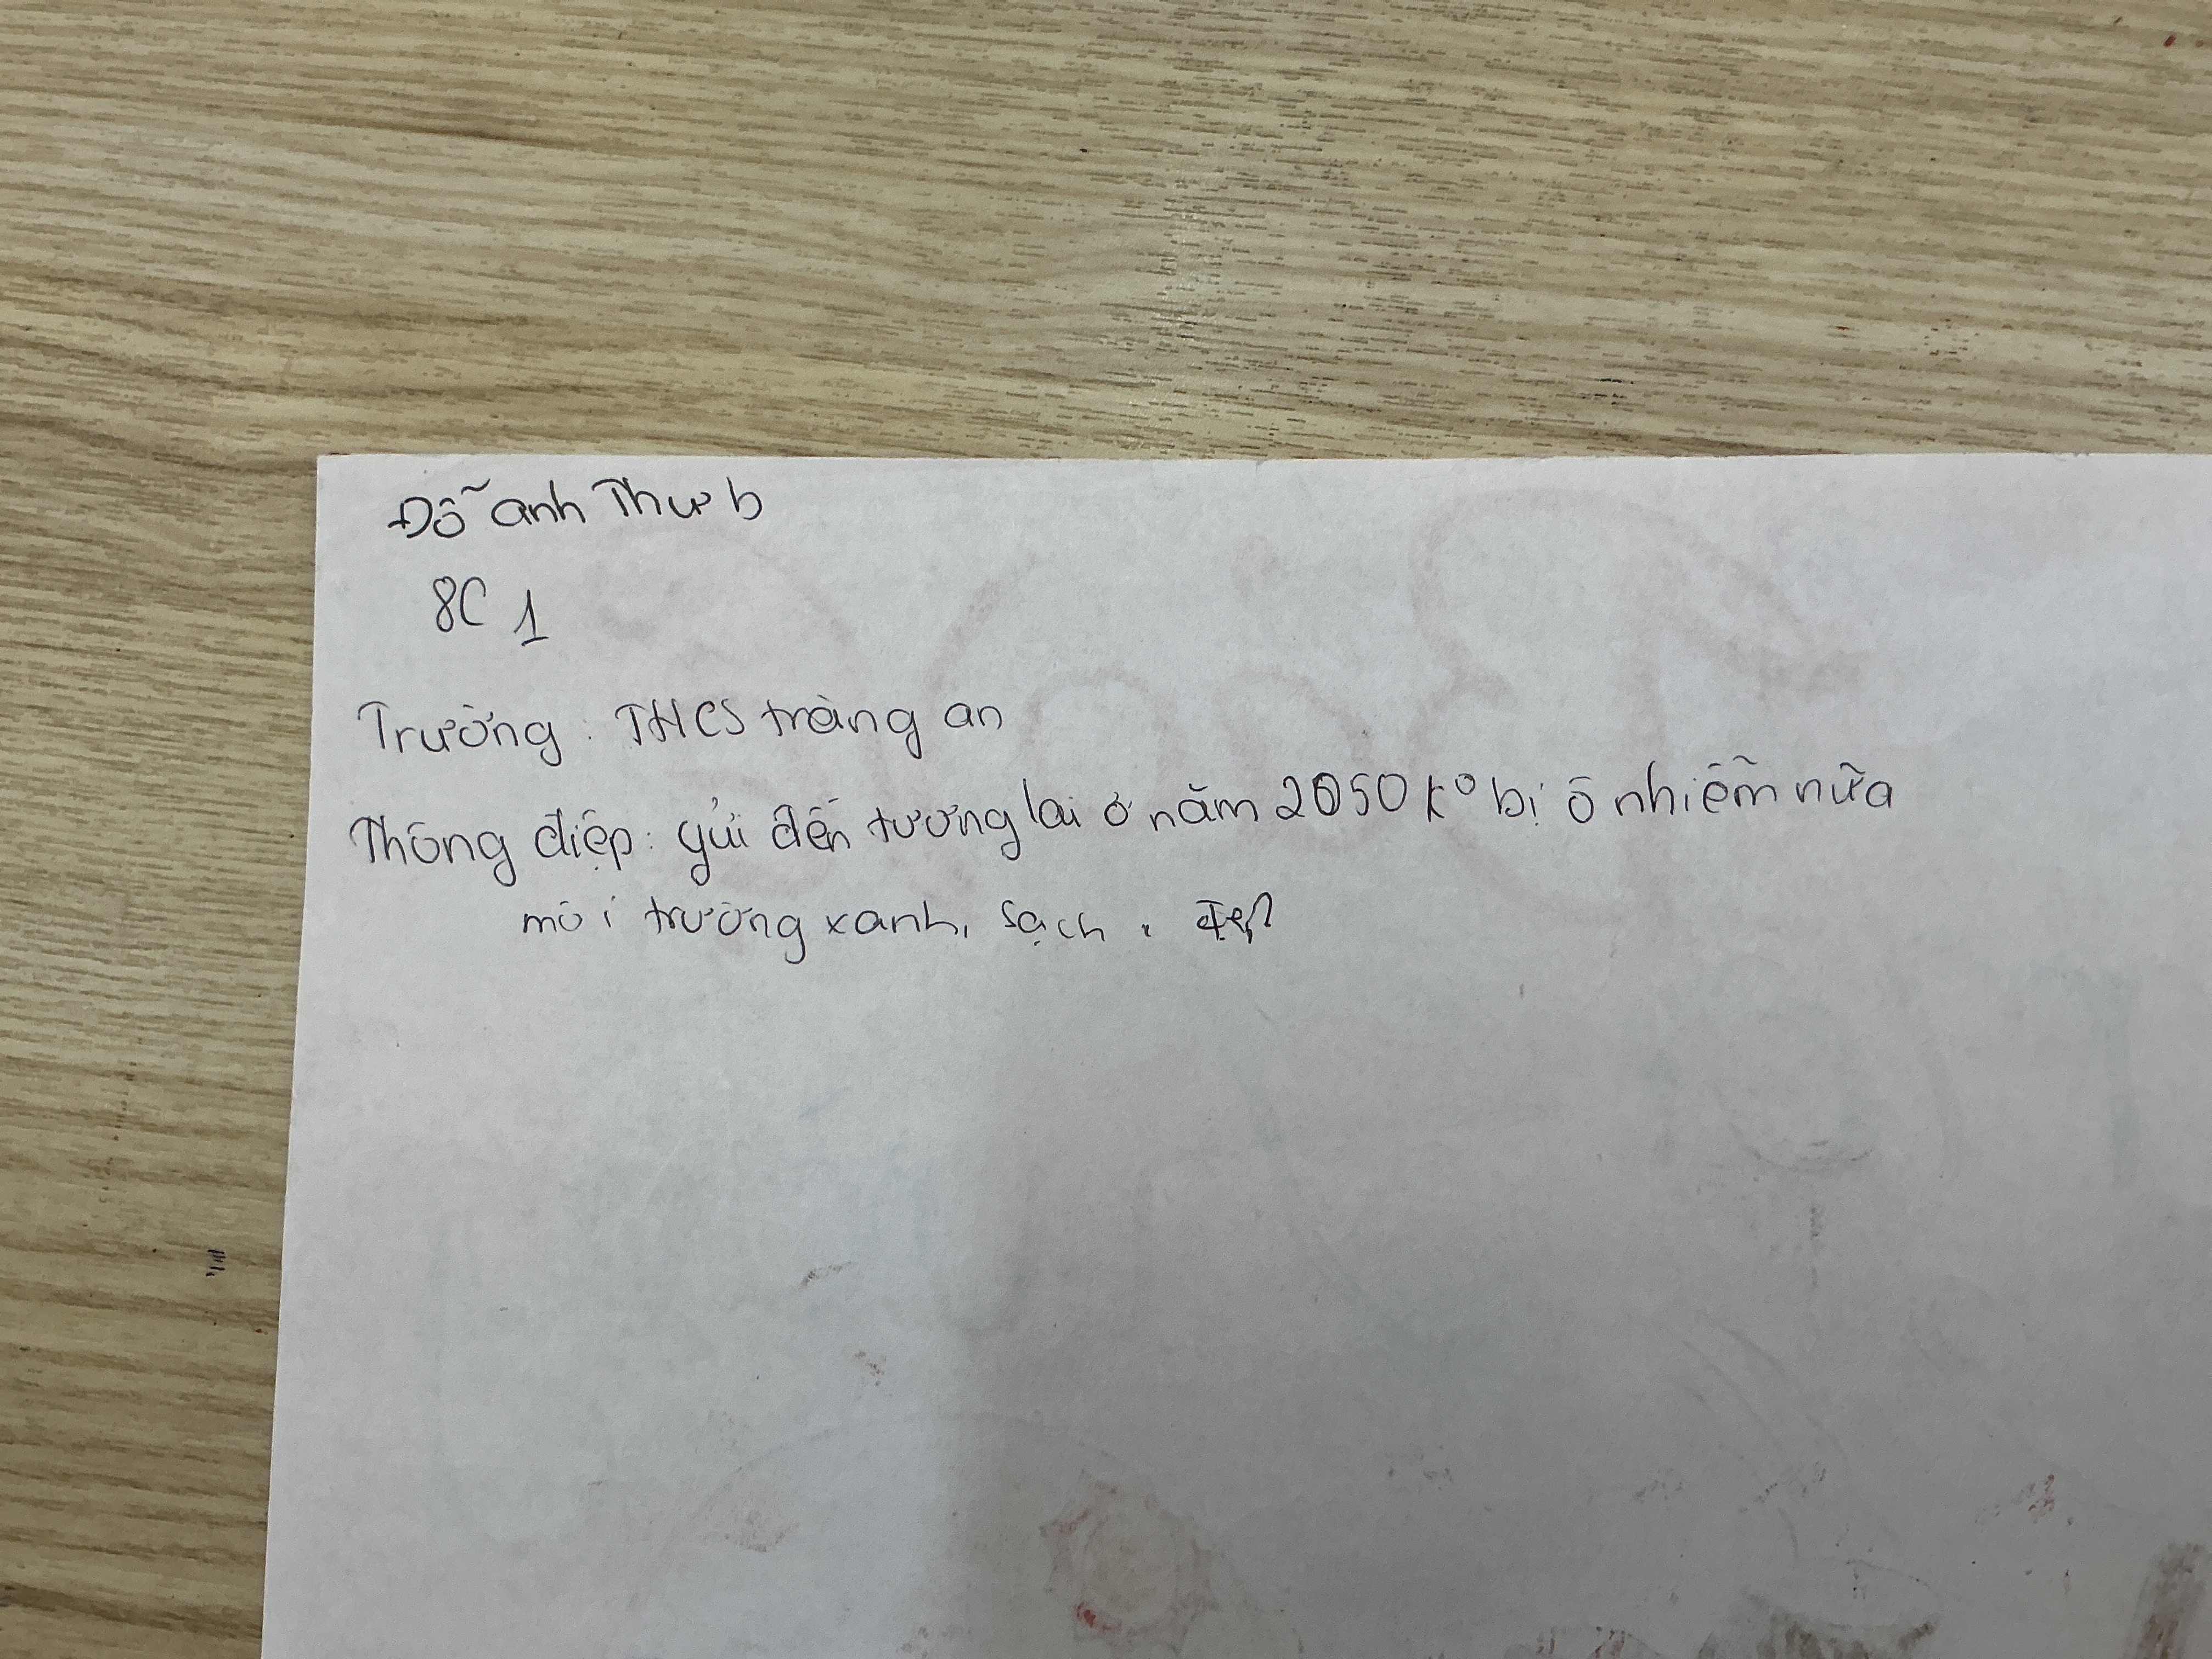 Đỗ anh Thư b
8C1
Trường: THCS tràng an
Thông điệp: gửi đến tương lai ở năm 2050 k° bị ô nhiễm nữa
môi trường xanh, sạch, đẹp